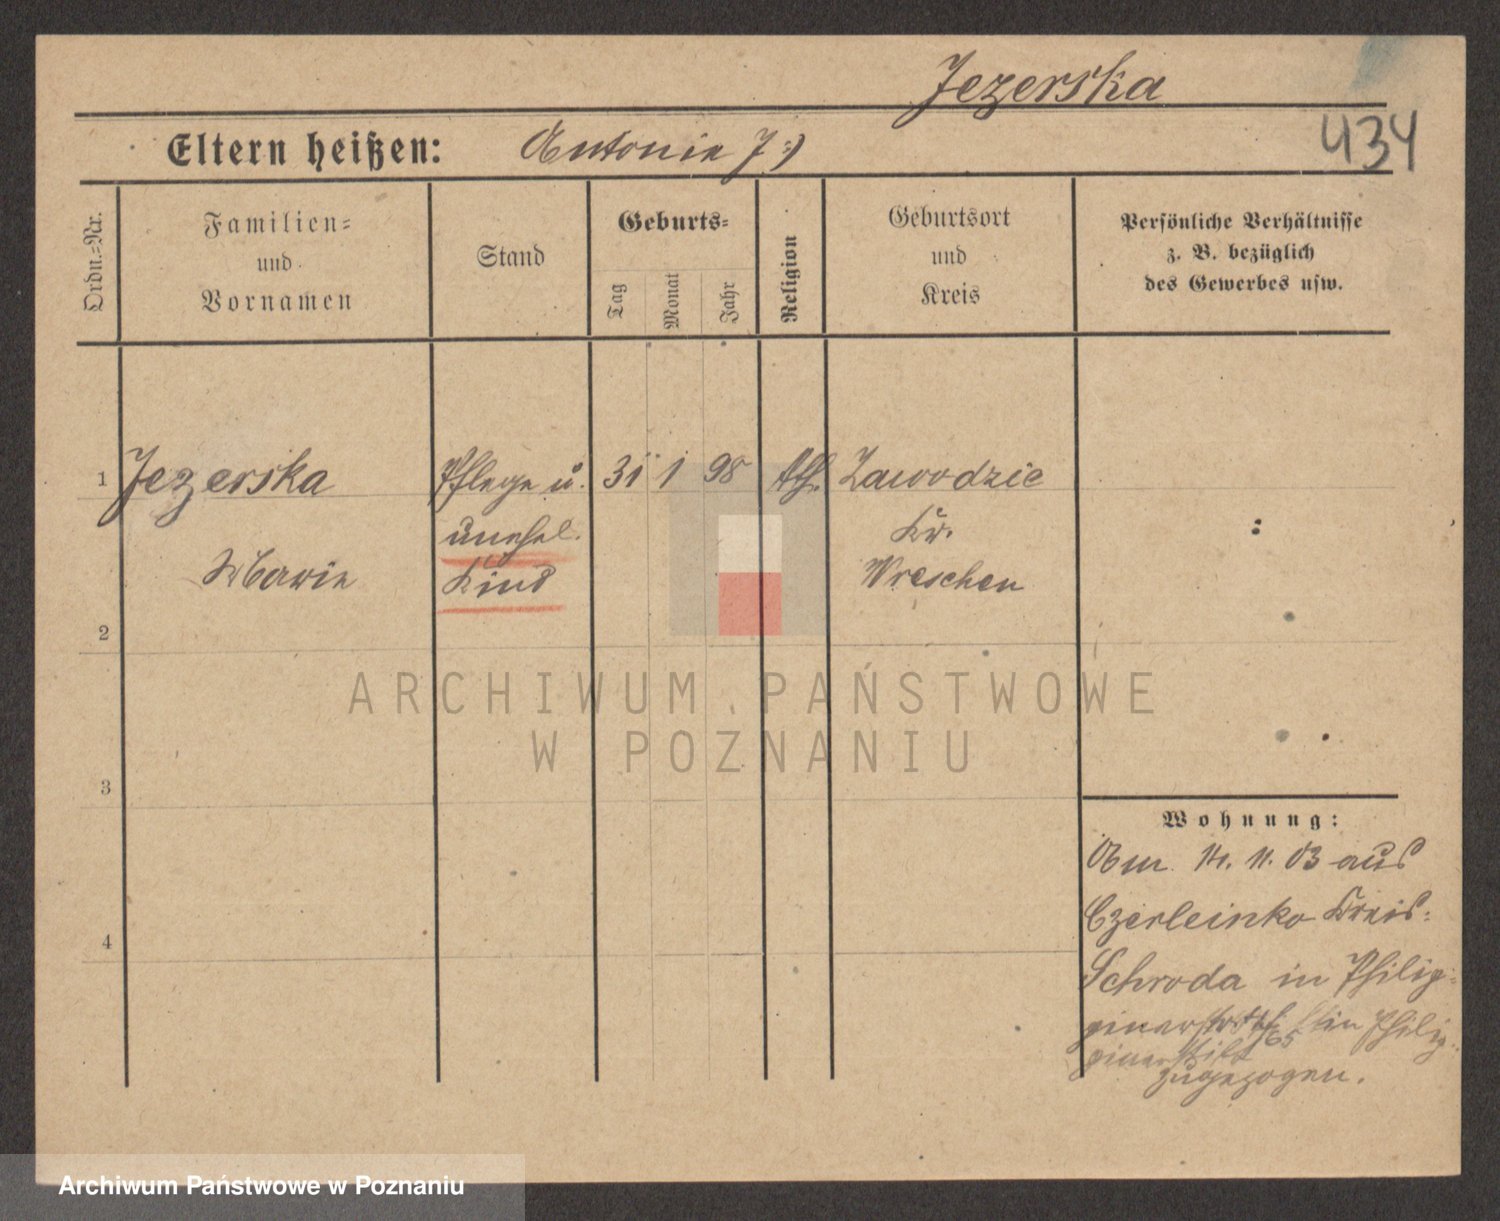 Jezerska
434
Eltern heißen: Antonie J.)
Ordn.=Nr.
Familien=
und
Vornamen
Stand
Geburts=
Tag
Monat
Jahr
Religion
Geburtsort
und
Kreis
Persönliche Verhältnisse
z. B. bezüglich
des Gewerbes usw.
1 Jezerska Pflege u. 31 1 98 kth. Zawodzie
unehel. Kr.
Marie Kind Wreschen
2
ARCHIWUM PAŃSTWOWE
W POZNANIU
3
Wohnung:
Am 14. 11. 03 aus
Czerleinko Kreis
Schroda in Philip=
pinerstraße in Philip=
pinerstift
zugezogen.
4
Archiwum Państwowe w Poznaniu